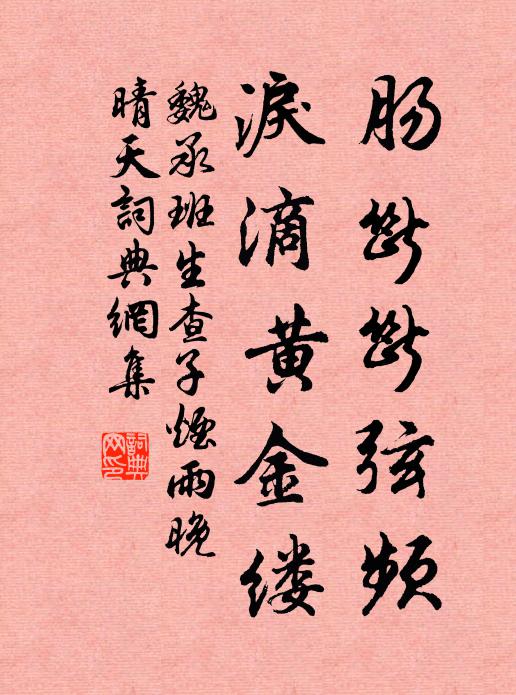 肠断断弦频
淚滴黄金缕
魏承班生查子煙雨晚
晴天詞典網集
詞典网印